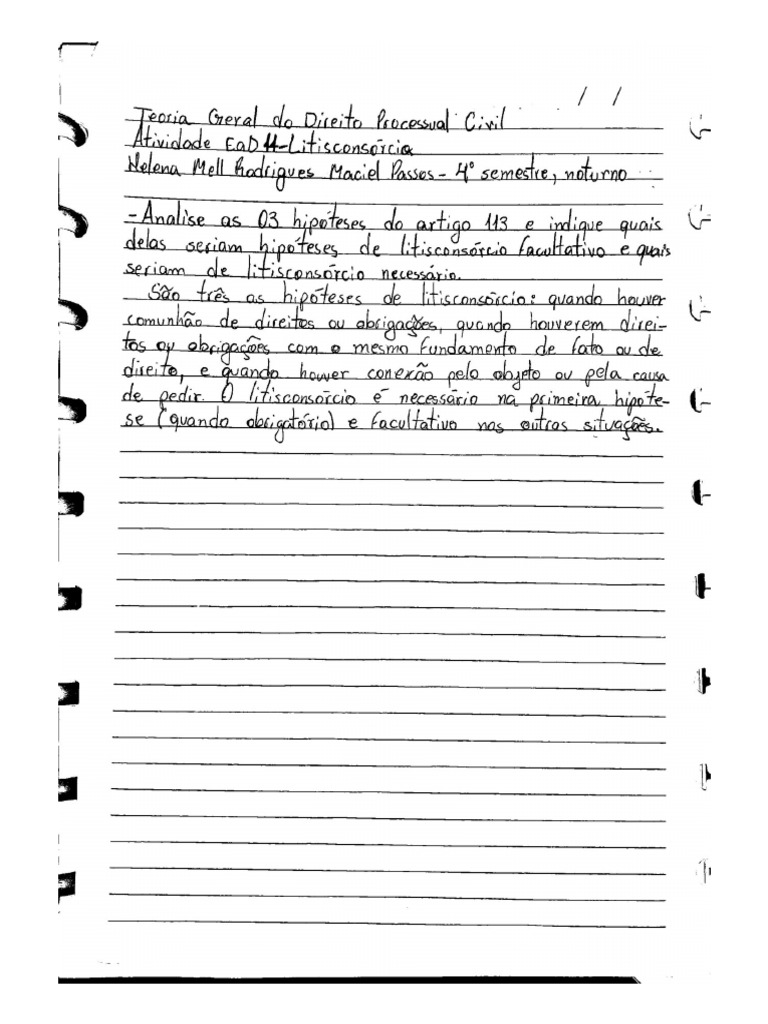 / /
Teoria Geral do Direito Processual Civil
Atividade EaD 11-Litisconsórcio
Helena Mell Rodrigues Maciel Passos - 4° semestre, noturno
- Analise as 03 hipóteses do artigo 113 e indique quais
delas seriam hipóteses de litisconsórcio facultativo e quais
seriam de litisconsórcio necessário.
São três as hipóteses de litisconsórcio: quando houver
comunhão de direitos ou obrigações, quando houverem direi-
tos ou obrigações com o mesmo fundamento de fato ou de
direito, e quando houver conexão pelo objeto ou pela causa
de pedir. O litisconsórcio é necessário na primeira hipóte-
se (quando obrigatório) e facultativo nas outras situações.